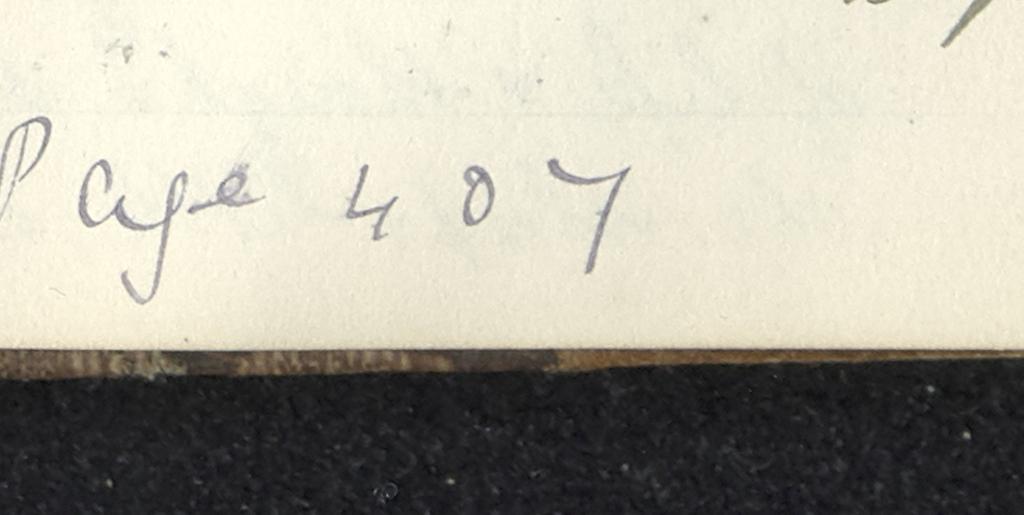 Page 407